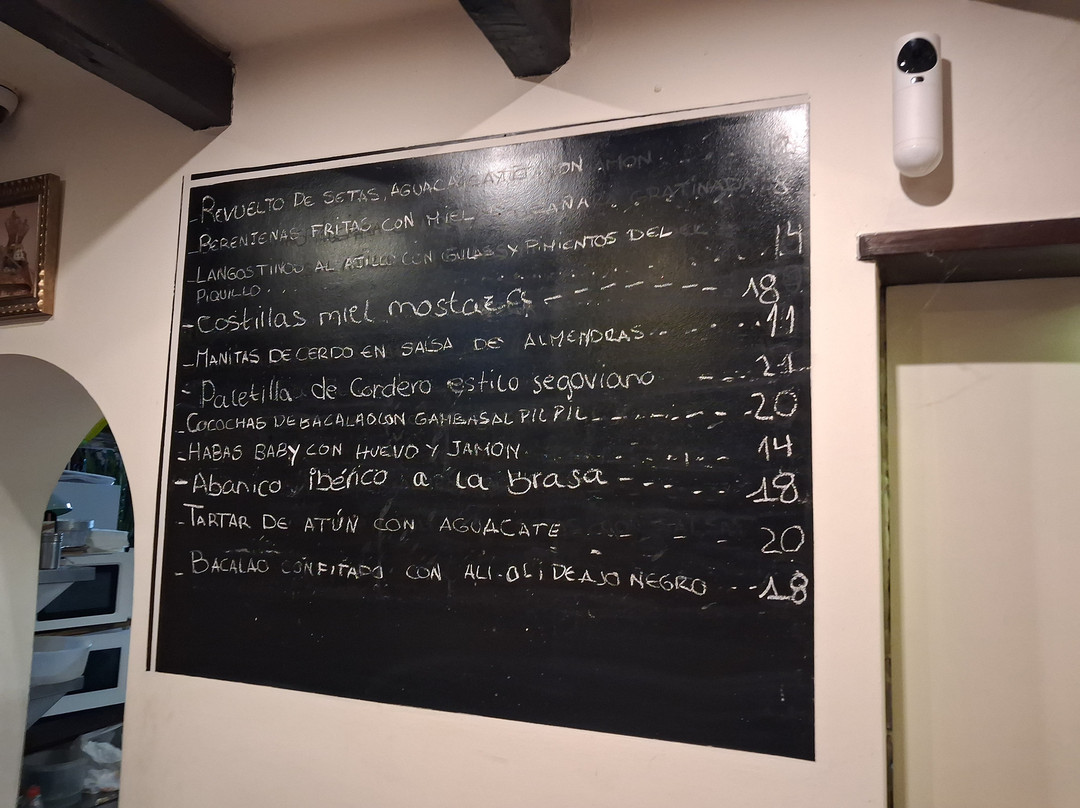 - REVUELTO DE SETAS, AGUACATE CON JAMON
- BERENJENAS FRITAS CON MIEL DE CAÑA . . . 8
- LANGOSTINOS AL AJILLO CON GULAS Y PIMIENTOS DEL 14
PIQUILLO . . .
- Costillas miel mostaza - - - - - - - 18
- MANITAS DE CERDO EN SALSA DE ALMENDRAS . . . . . 11
- Paletilla de Cordero estilo segoviano - - . . . 21
- COCOCHAS DE BACALAO CON GAMBAS AL PIL PIL - . - . - - 20
- HABAS BABY CON HUEVO Y JAMON . . . . . 14
- Abanico ibérico a la brasa - - - - - 18
- TARTAR DE ATÚN CON AGUACATE - - - 20
- BACALAO CONFITADO CON ALI-OLI DE AJO NEGRO - - 18